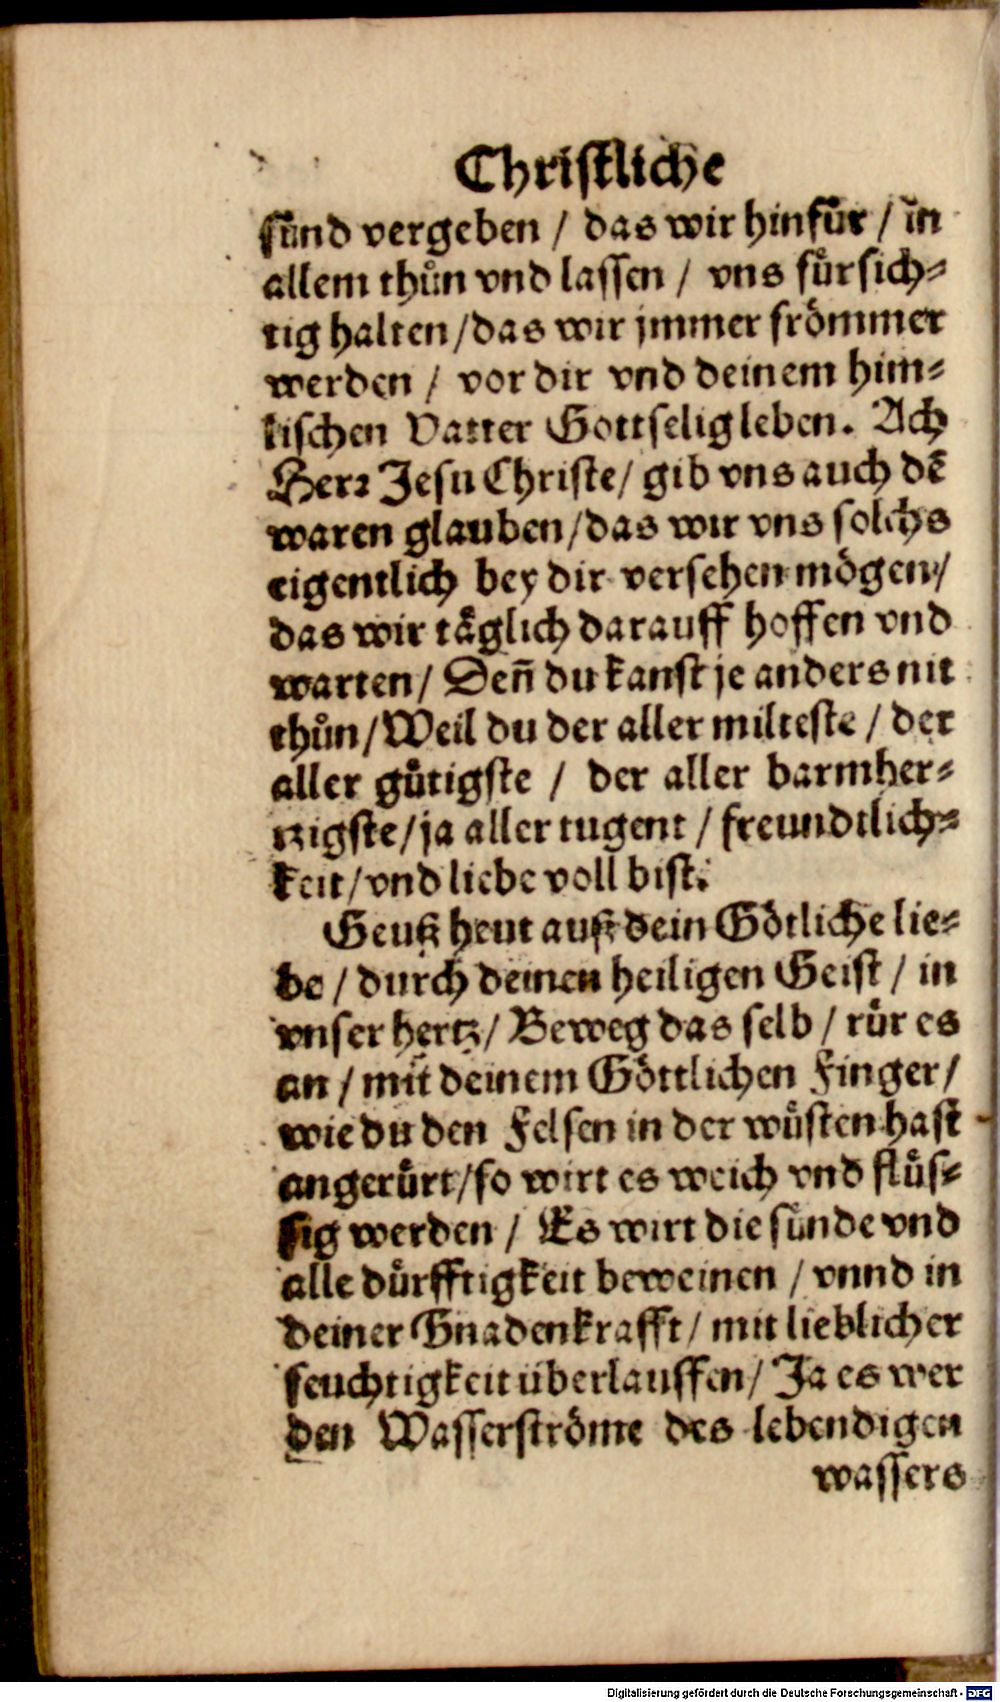 Christliche
sünd vergeben / das wir hinfür / in
allem thůn vnd lassen / vns fürsich-
tig halten / das wir jmmer frömmer
werden / vor dir vnd deinem him-
lischen Vatter Gottselig leben. Ach
Herr Jesu Christe / gib vns auch dẽ
waren glauben / das wir vns solchs
eigentlich bey dir versehen mögen /
das wir täglich darauff hoffen vnd
warten / Deñ du kanst je anders nit
thůn / Weil du der aller milteste / der
aller gütigste / der aller barmher-
tzigste / ja aller tugent / freundtlich-
keit / vnd liebe voll bist.
Geuß heut auß dein Götliche lie-
be / durch deinen heiligen Geist / in
vnser hertz / Beweg das selb / rür es
an / mit deinem Göttlichen Finger /
wie du den Felsen in der wüsten hast
angerürt / so wirt es weich vnd flüs-
sig werden / Es wirt die sünde vnd
alle dürfftigkeit beweinen / vnnd in
deiner Gnadenkrafft / mit lieblicher
feuchtigkeit überlauffen / Ja es wer
den Wasserströme des lebendigen
wassers
Digitalisierung gefördert durch die Deutsche Forschungsgemeinschaft - DFG